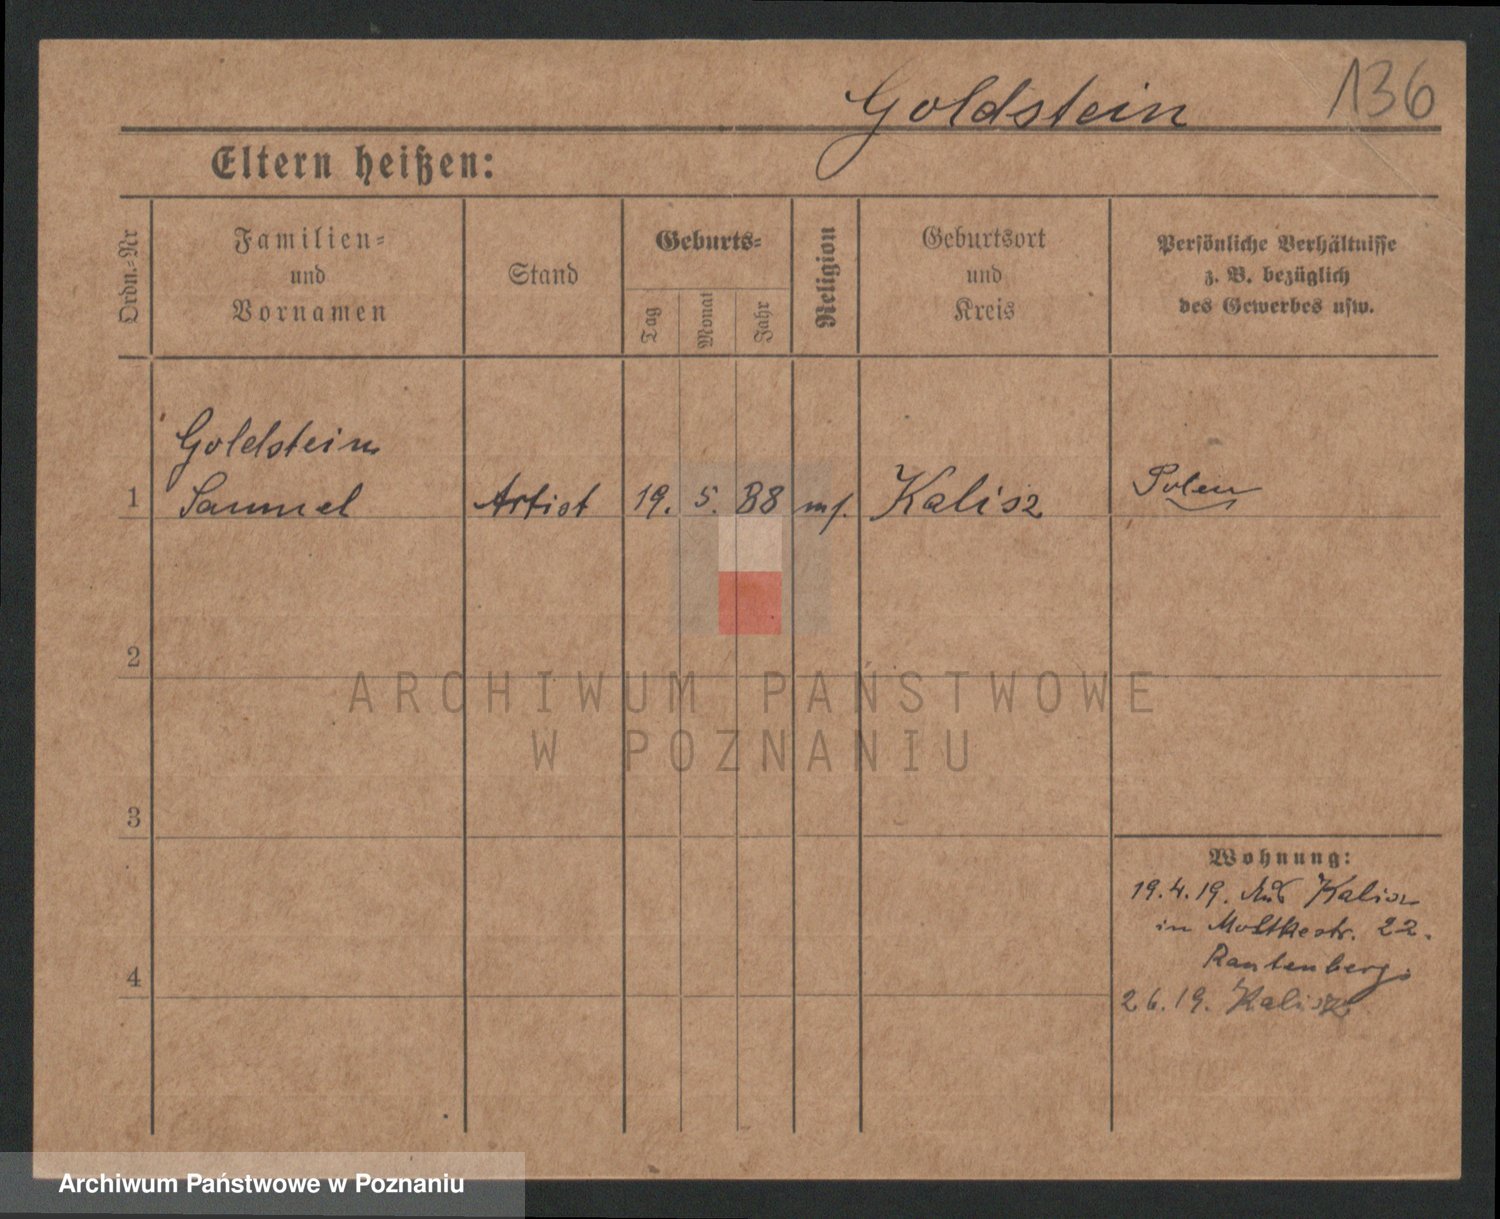 Goldstein 136
Eltern heißen:
Ordn.-Nr
Familien-
und
Vornamen
Stand
Geburts-
Tag
Monat
Jahr
Religion
Geburtsort
und
Kreis
Persönliche Verhältnisse
z. B. bezüglich
des Gewerbes usw.
Goldstein
1 Samuel Artist 19. 5. 88 Kalisz Polen
2
ARCHIWUM PAŃSTWOWE
W POZNANIU
3
Wohnung:
19.4.19. Aus Kalisz
in Moltkestr. 22.
Rautenberg
4
2 6.19. Kalisz
Archiwum Państwowe w Poznaniu